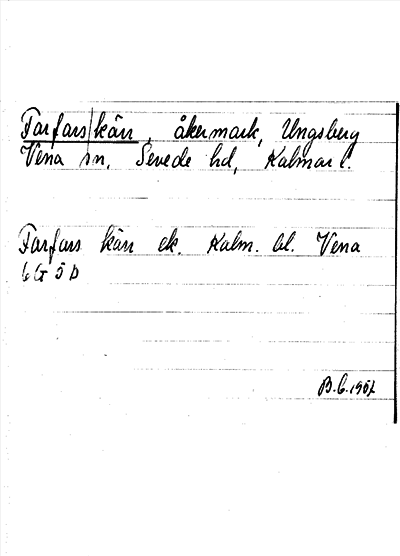 Farfars|kärr, åkermark, Ungsberg
Vena sn, Sevede hd, Kalmar l.
Farfars kärr ek. Kalm. bl. Vena
6G 5b
B.C. 1957